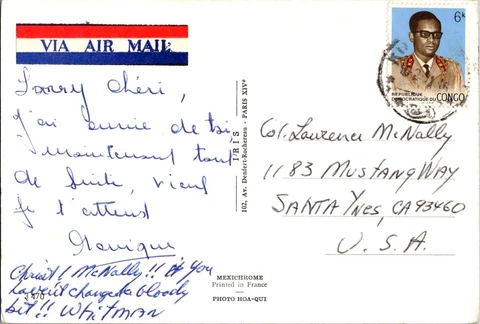 VIA AIR MAIL
Larry Chéri,
j'ai envie de toi
maintenant tout
de suite, viens
je t'attend
Monique
Christ! McNally!! If you
haven't changed a bloody
bit!! WHITMAN
3470
IRIS
102, Av. Denfert-Rochereau - PARIS XIVe
6K
REPUBLIQUE
DEMOCRATIQUE DU CONGO
Col. Laurence McNally
1183 Mustang Way
Santa Ynes, CA 93460
U.S.A.
MEXICHROME
Printed in France
PHOTO HOA-QUI